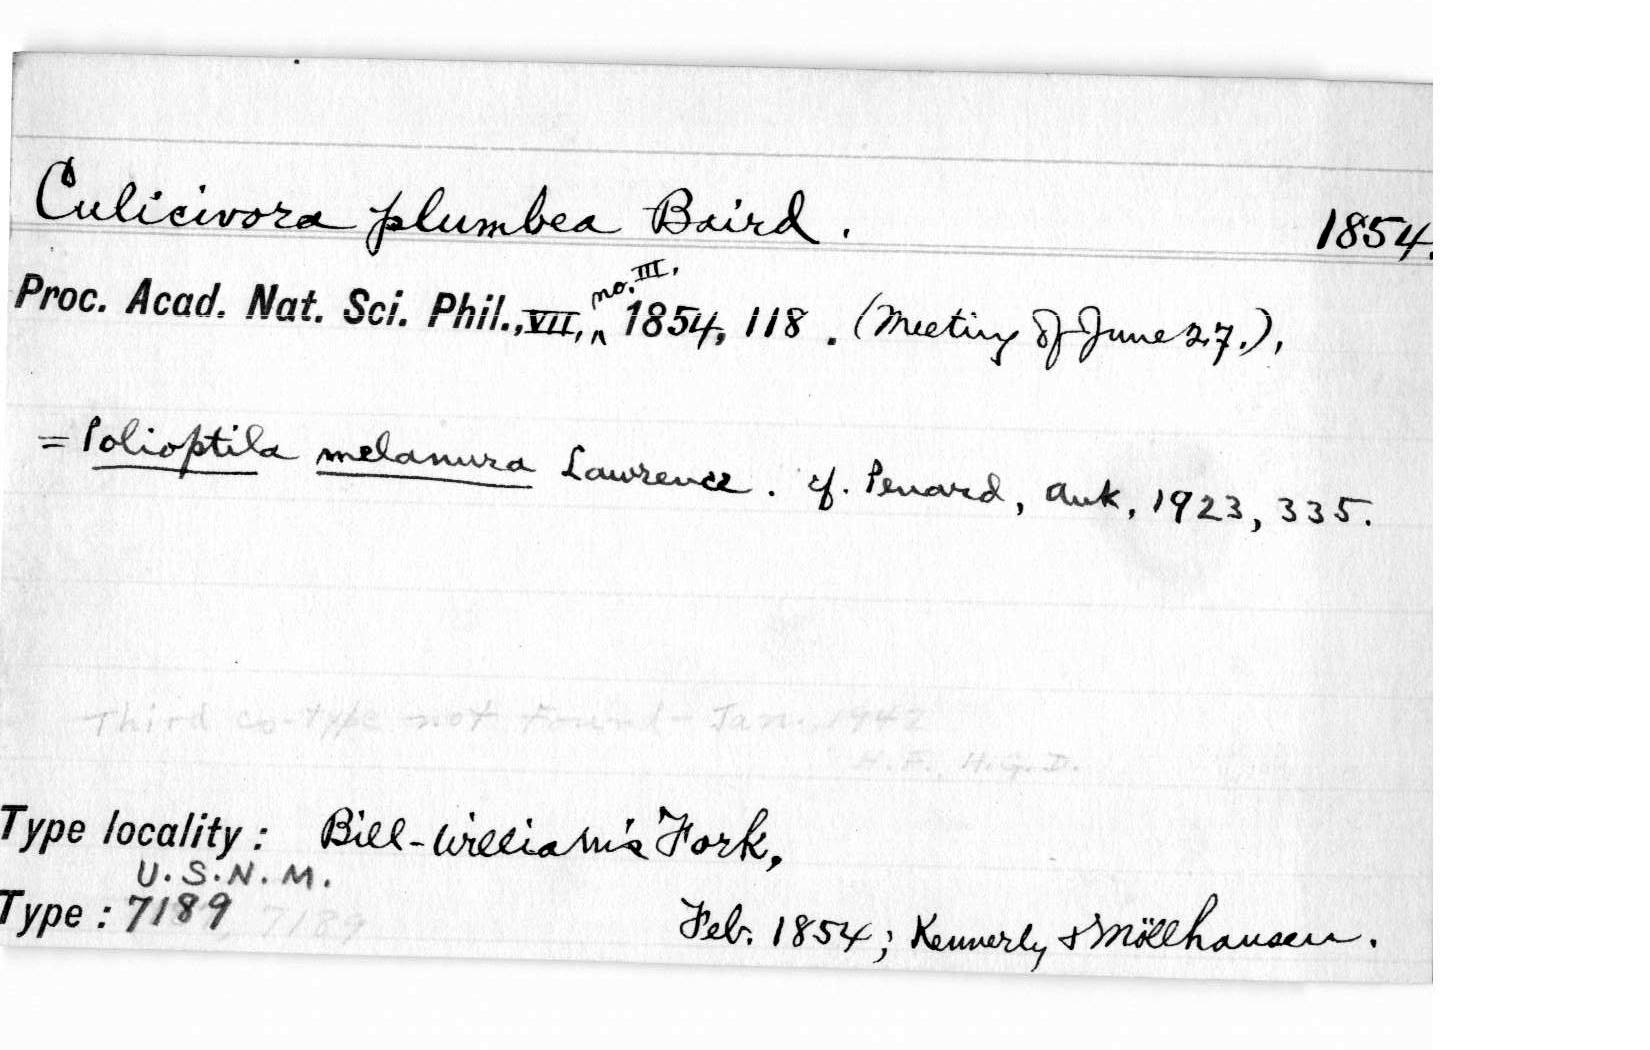 Culicivora plumbea Baird. 1854.
Proc. Acad. Nat. Sci. Phil., VII, no. III, 1854, 118. (Meeting of June 27.),
= Polioptila melanura Lawrence. cf. Penard, Auk, 1923, 335.
Third co-type not found - Jan. 1942
H.F., H.G.D.
Type locality: Bill-William's Fork,
U.S.N.M.
Type: 7189, 7189
Feb. 1854; Kennerly & Möllhausen.